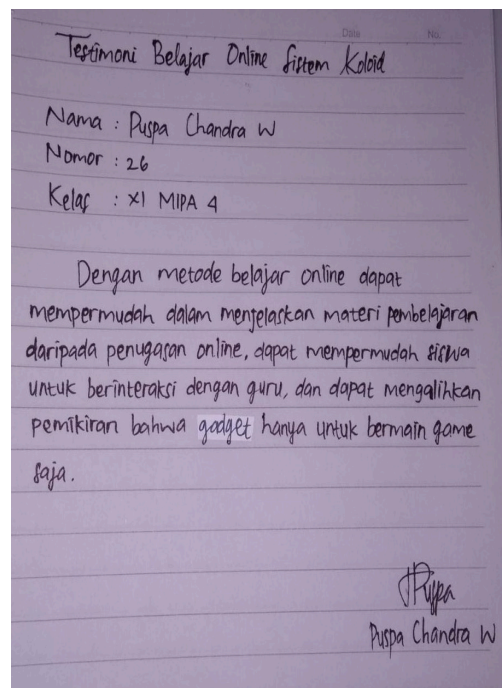 Date No.
Testimoni Belajar Online Sistem Koloid
Nama : Puspa Chandra W
Nomor : 26
Kelas : XI MIPA 4
Dengan metode belajar online dapat
mempermudah dalam menjelaskan materi pembelajaran
daripada penugasan online, dapat mempermudah siswa
untuk berinteraksi dengan guru, dan dapat mengalihkan
pemikiran bahwa gadget hanya untuk bermain game
saja.
Puspa
Puspa Chandra W